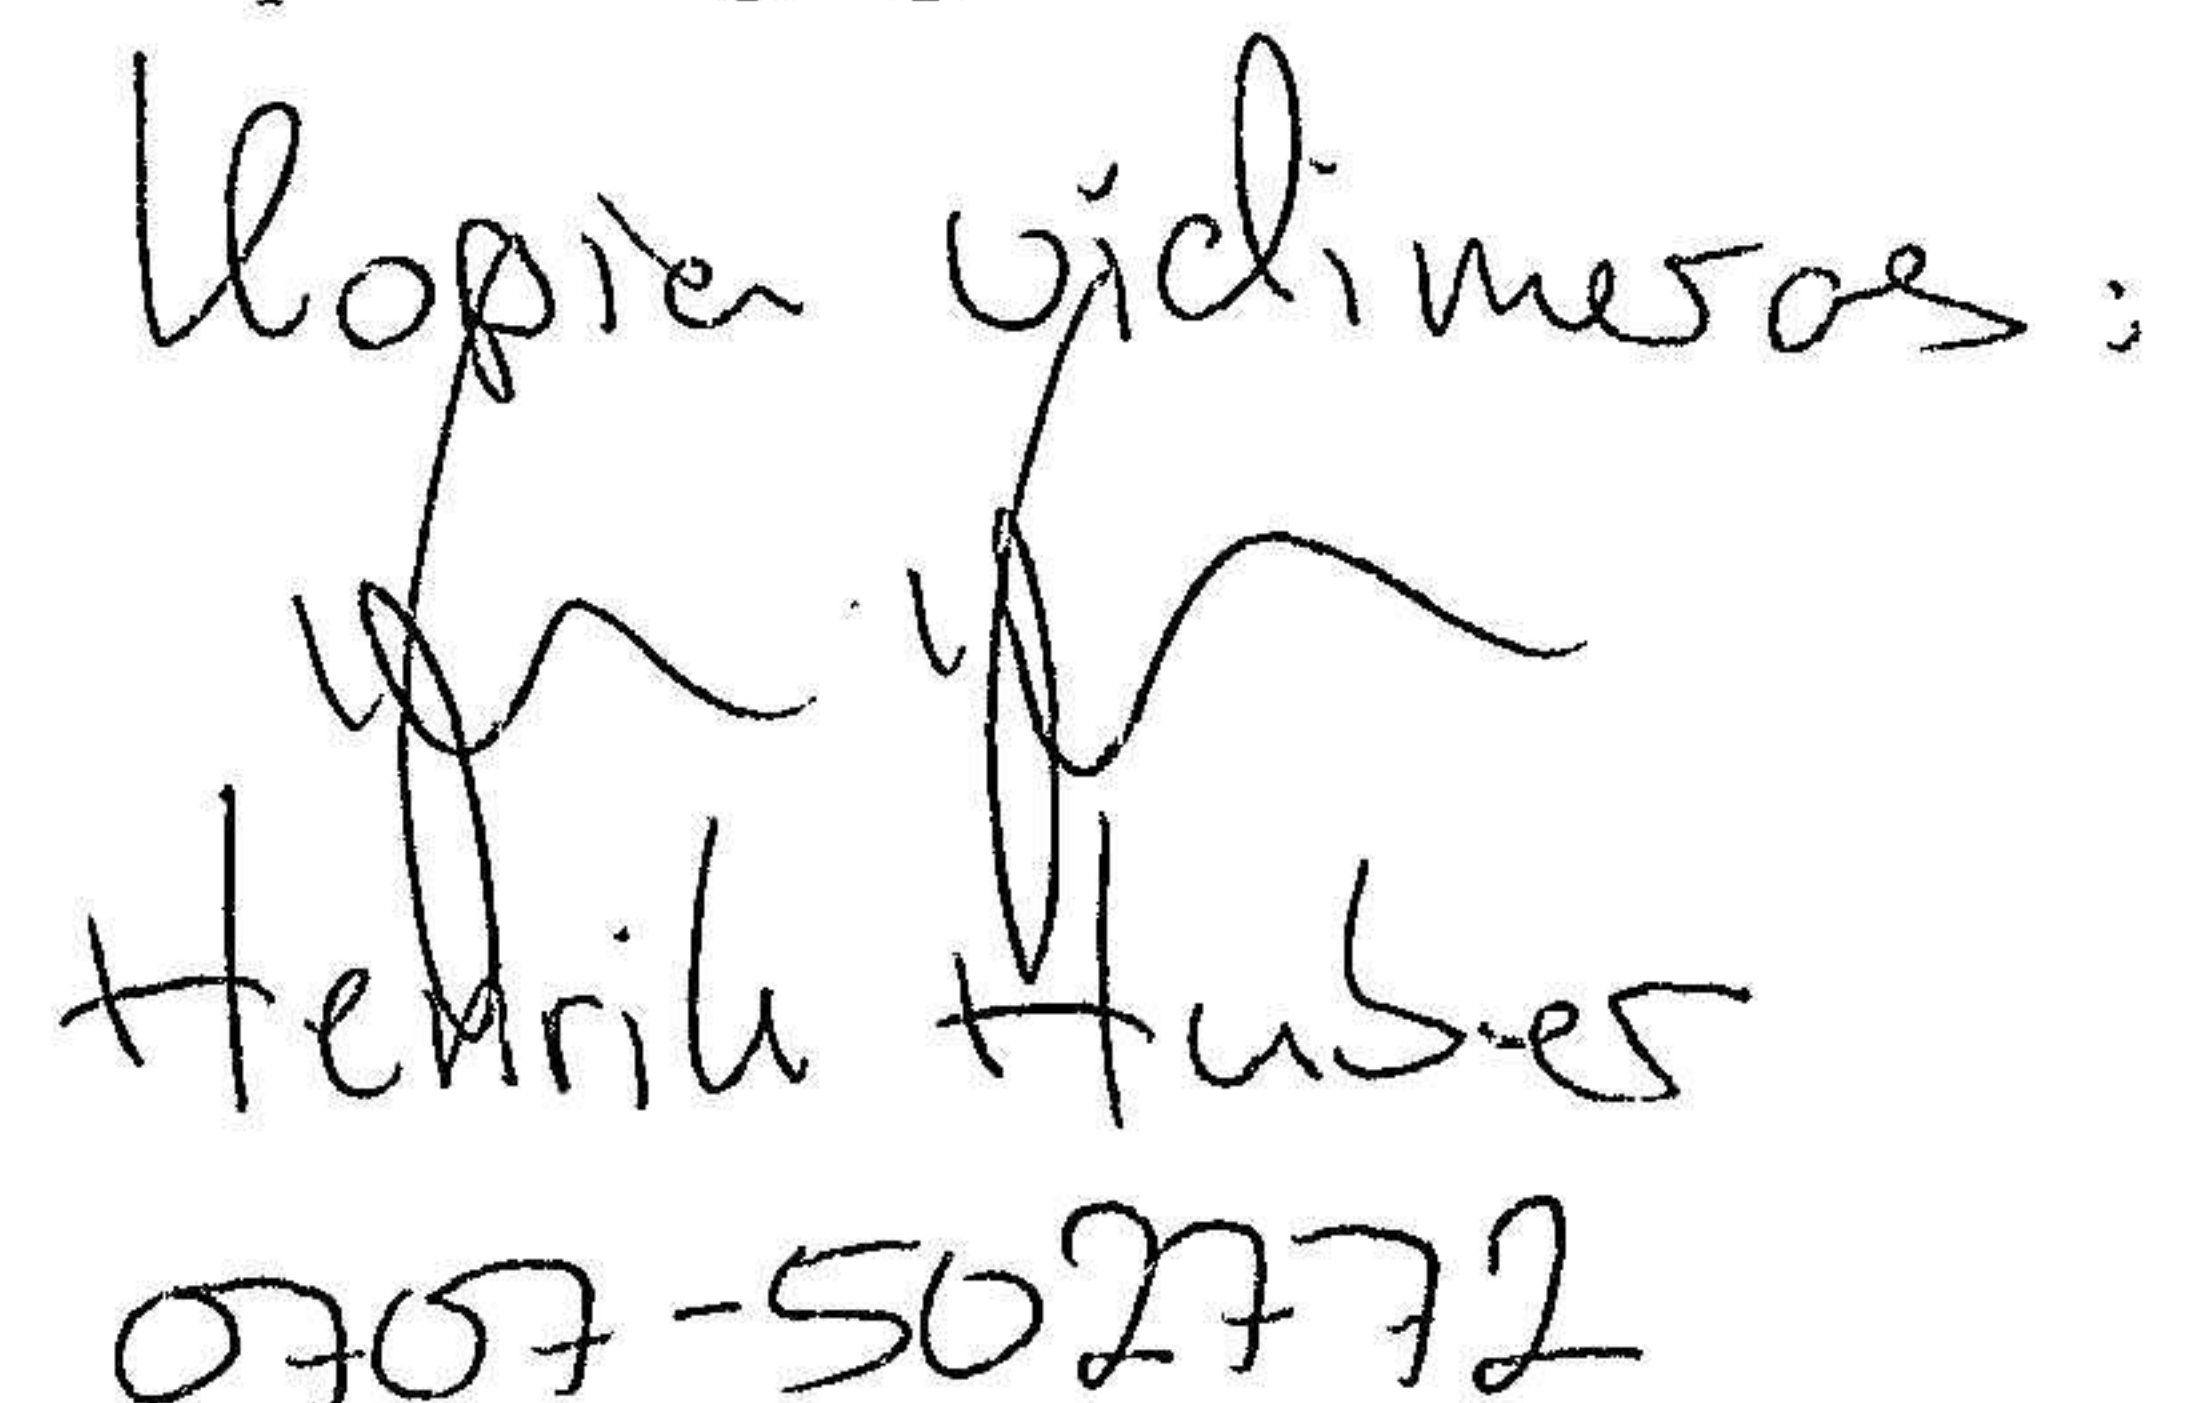 Kopian vidimeras:
Henrik Huber
0707-502772